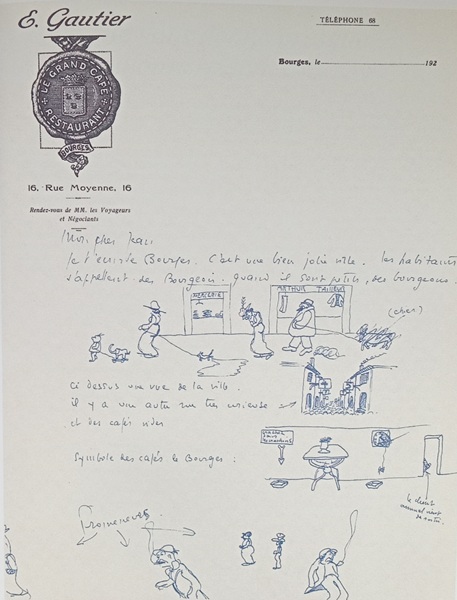 E. Gautier
TÉLÉPHONE 68
LE GRAND CAFÉ
RESTAURANT
BOURGES
Bourges, le 192
16, Rue Moyenne, 16
Rendez-vous de MM. les Voyageurs
et Négociants
Mon cher Jean
Je t'écris de Bourges. C'est une bien jolie ville. Les habitants
s'appellent des Bourgeois. Quand il sont petits, des bourgeons.
MERCERIE
TAILLEUR
(cher)
Ci dessus une vue de la ville.
il y a une autre rue très curieuse
et des cafés vides
Symbole des cafés de Bourges :
le client
Promeneurs